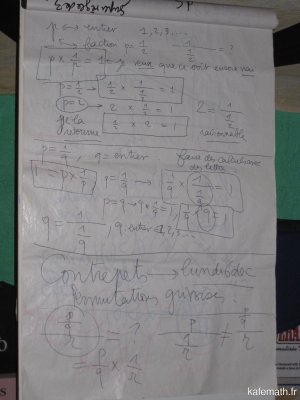 p ↔ entier 1, 2, 3...
fraction 1/2 1/(1/2) = ?
p × 1/p = 1 → je veux que ce soit encore vrai
p = 1/2 → 1/2 × 1/(1/2) = 1
p = 2 → 2 × 1/2 = 1 2 = 1/(1/2)
je la
1/2 × 2 = 1 raisonnable
p = 1/q, q = entier faire des calculs avec
des lettres
1 = p × 1/p p = 1/q → 1/q × 1/(1/q) = 1
p = q → q × 1/q = 1, 1/q × q = 1
q = 1/(1/q), q entier 1, 2, 3...
Contrepets → lundi
permutations
(p/q)/r = ? p/(q/r) ≠ (p/q)/r
= p/q × 1/r
katemath.fr